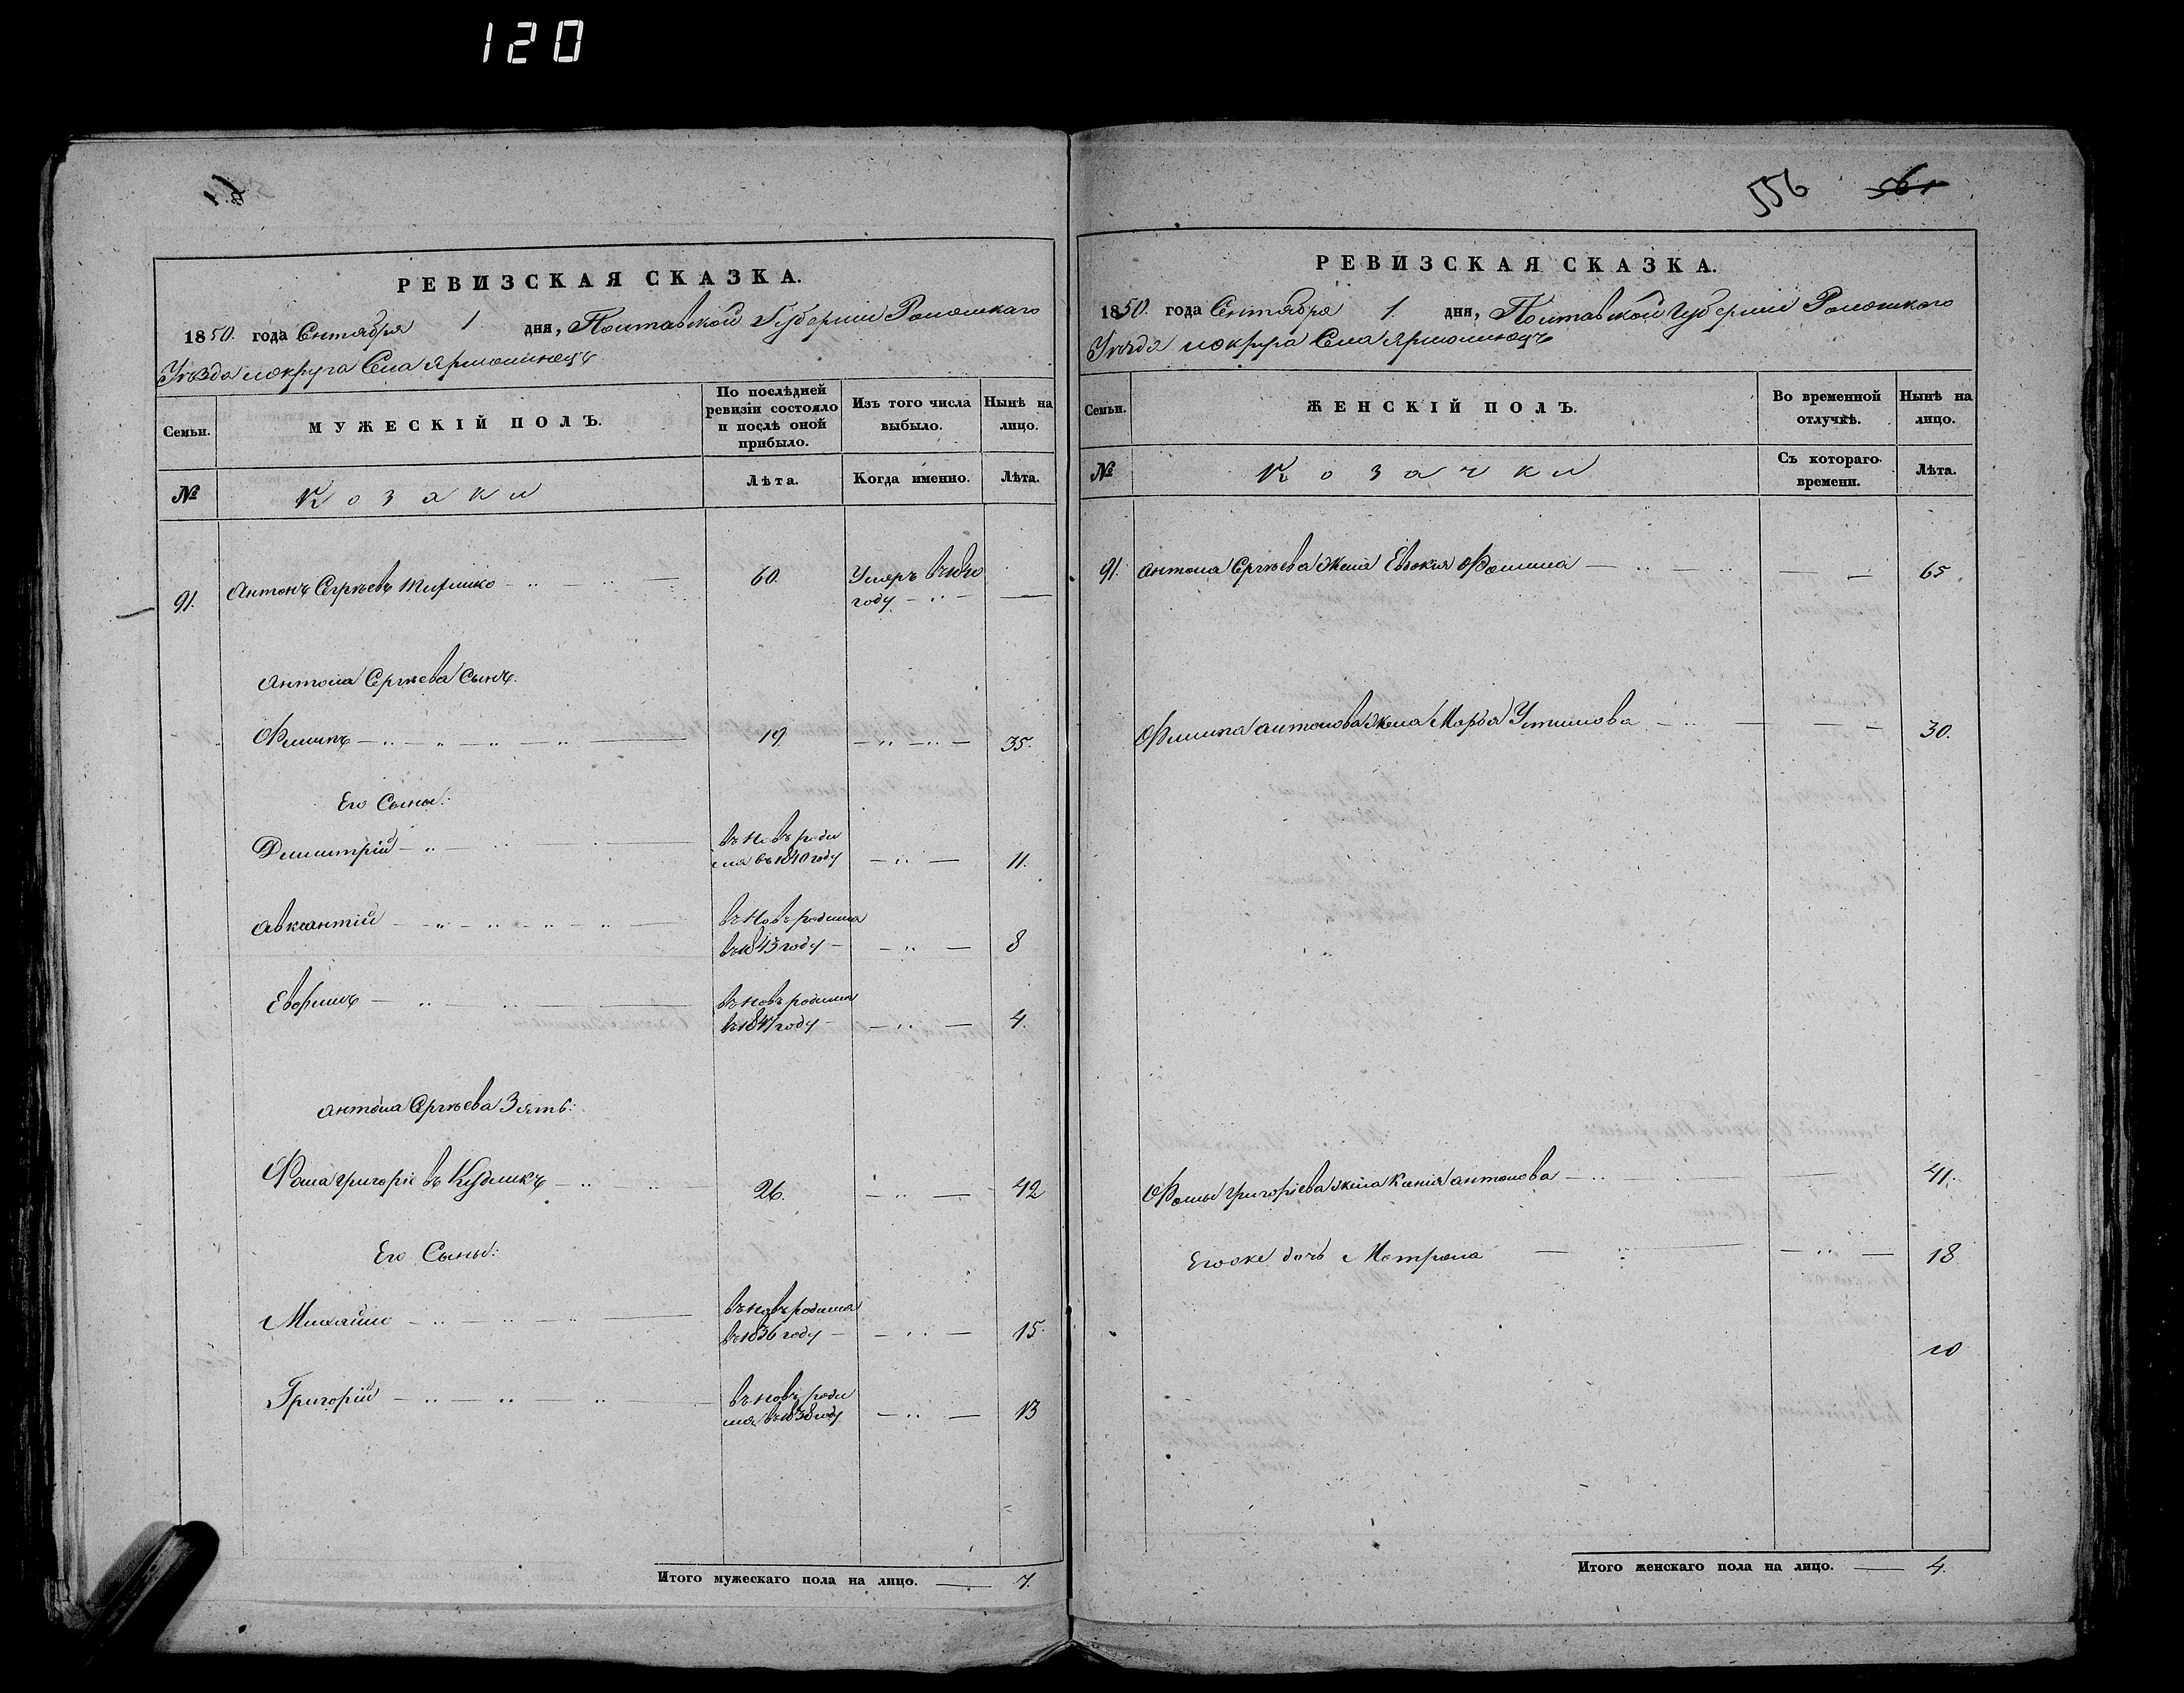 120
РЕВИЗСКАЯ СКАЗКА.
1850. года Сентября 1 дня, Полтавской Губерніи Роменскаго
Уѣзда и округа Села Ярмолинецъ
Семьи.
МУЖЕСКІЙ ПОЛЪ.
По послѣдней ревизіи состояло и послѣ оной прибыло.
Изъ того числа выбыло.
Нынѣ на лицо.
№
Козаки
Лѣта.
Когда именно.
Лѣта.
91. Антонъ Сергѣевъ 60. Умеръ въ
году
Антона Сергѣева Сынъ.
Филипъ 19. 35.
Его Сыны:
Димитрій въ новъ роди
лся въ 1840 году 11.
Авксентий въ новъ родился
въ 1843 году 8
Евфимъ въ новъ родился
въ 1847 году 4.
Антона Сергѣева Зять:
Фома Григоріевъ Кудликъ 26. 42
Его Сыны:
Михайло въ новъ родился
въ 1836 году 15.
Григорій въ новъ роди
лся въ 1838 году 13
Итого мужескаго пола на лицо. 7.
556 561
РЕВИЗСКАЯ СКАЗКА.
1850. года Сентября 1. дня, Полтавской Губерніи Роменскаго
Уѣзда и округа Села Ярмолинецъ
Семьи.
ЖЕНСКІЙ ПОЛЪ.
Во временной отлучкѣ.
Нынѣ на лицо.
№
Козачки
Съ котораго времени.
Лѣта.
91. Антона Сергѣева жена Евдокія Фомина 65
Филипа Антонова жена Марья Устимова 30.
Фомы Григоріева жена Ксенія Антонова 41.
Егоже дочь Матрона 18
10
Итого женскаго пола на лицо. 4.